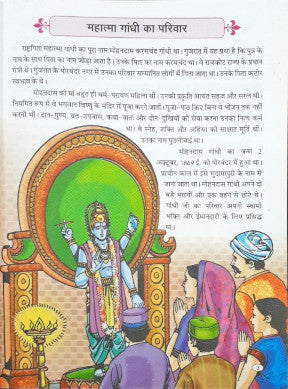 महात्मा गांधी का परिवार
राष्ट्रपिता महात्मा गांधी का पूरा नाम मोहनदास करमचंद गांधी था। गुजरात में यह प्रथा है कि पुत्र के
नाम के साथ पिता का नाम जोड़ा जाता है। उनके पिता का नाम करमचंद था। वे राजकोट राज्य के प्रधान
मंत्री थे। गुजरात के पोरबंदर नगर में उनका परिवार सम्मानित लोगों में गिना जाता था। उनके पिता कठोर
स्वभाव के थे।
मोहनदास की मां बहुत ही धर्म-परायण महिला थीं। उनकी प्रकृति अत्यंत सहज और सरल थी।
नियमित रूप से वे भगवान विष्णु के मंदिर में पूजा करने जातीं। पूजा-पाठ किए बिना वे भोजन तक नहीं
करती थीं। दान-पुण्य, व्रत-उपवास, कथा-वार्ता और दीन-दुखियों की सेवा करना उनका नित्य कर्म
था। वे स्नेह, शक्ति और अहिंसा की साक्षात मूर्ति थीं।
उनका नाम पुतलीबाई था।
मोहनदास गांधी का जन्म 2
अक्टूबर, 1869 ई. को पोरबंदर में हुआ था।
प्राचीन काल में इसे सुदामापुरी के नाम से
जाना जाता था। मोहनदास गांधी अपने दो
बड़े भाइयों और एक बहन से छोटे थे।
गांधी जी का परिवार अपनी स्वामी
भक्ति और ईमानदारी के लिए प्रसिद्ध
था।